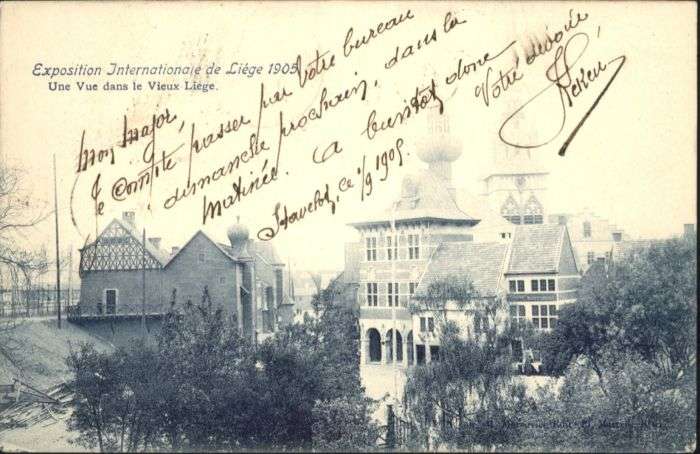 Exposition Internationale de Liége 1905
Une Vue dans le Vieux Liége.
Mon Major,
Je compte passer par votre bureau
dimanche prochain, dans la
Matinée. A bientôt donc
Votre dévoué
Stavelot, ce 1/9 1905.